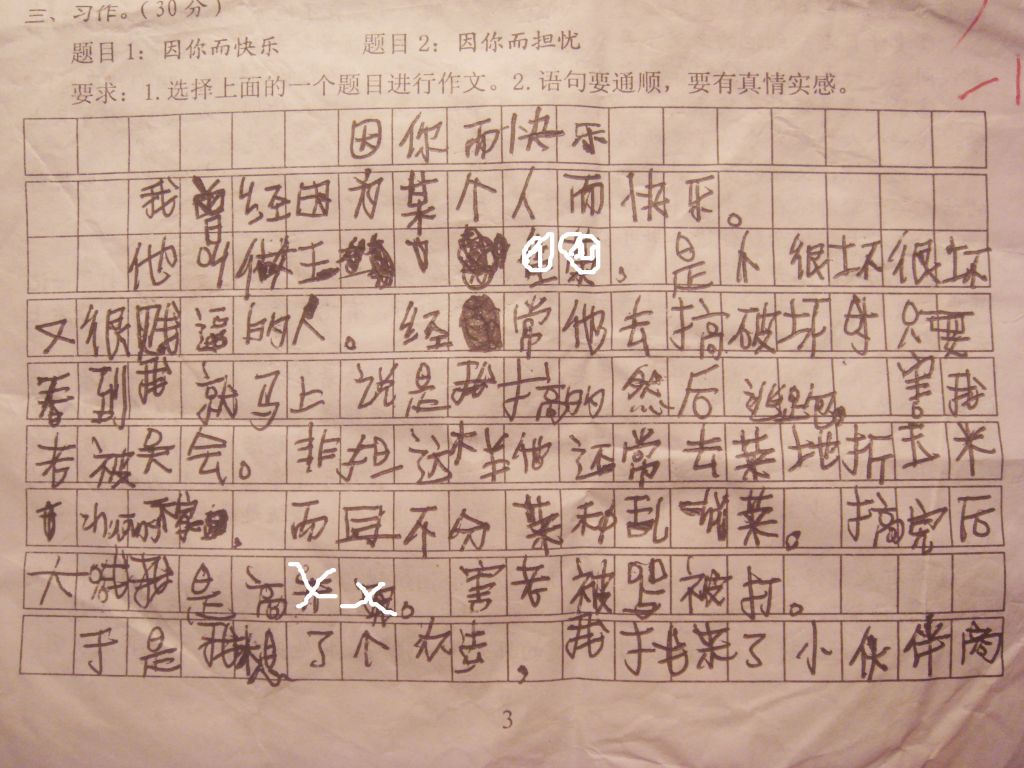 三、习作。（30分）
题目1：因你而快乐 题目2：因你而担忧
要求：1.选择上面的一个题目进行作文。2.语句要通顺，要有真情实感。
因你而快乐
我曾经因为某个人而快乐。
他叫做王 、是个很坏很坏
又很贱 的人。经常他去搞破坏 只要
看到我就马上说是我搞的然后 害我
老被 会。非担这样他还常去菜地折玉米
而且不分菜种乱 菜。搞完后
大喊我是高 。害老被骂被打。
于是我想了个办法，我于 来了小伙伴商
3